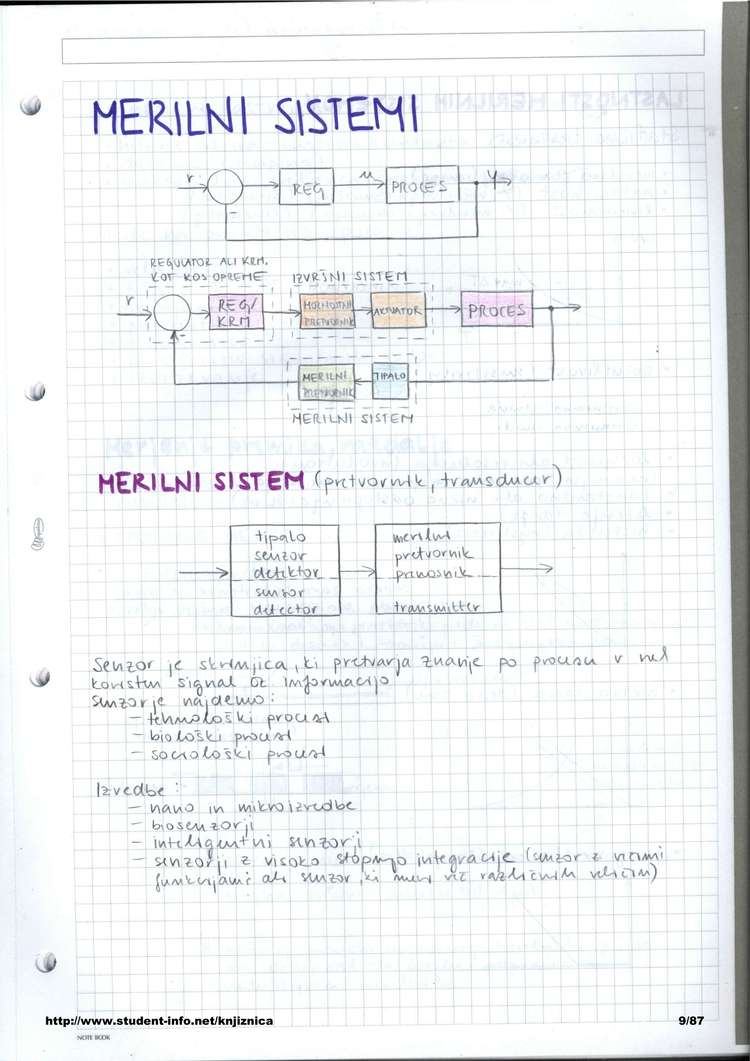 MERILNI SISTEMI
r
REG
u
PROCES
y
-
REGULATOR ALI KRM.
KOT KOS OPREME
IZVRŠNI SISTEM
r
REG/
KRM
MOČNOSTNI
PRETVORNIK
AKTUATOR
PROCES
-
MERILNI
PRETVORNIK
TIPALO
MERILNI SISTEM
MERILNI SISTEM (pretvornik, transducer)
tipalo
senzor
detektor
sensor
detector
merilni
pretvornik
prenosnik
transmitter
Senzor je skrinjica, ki pretvarja znanje po procesu v nek
koristen signal oz informacijo
senzorje najdemo:
- tehnološki procesi
- biološki procesi
- sociološki procesi
Izvedbe:
- nano in mikroizvedbe
- biosenzorji
- inteligentni senzorji
- senzorji z visoko stopnjo integracije (senzor z večimi
funkcijami ali senzor, ki meri več različnih veličin)
http://www.student-info.net/knjiznica
9/87
NOTE BOOK